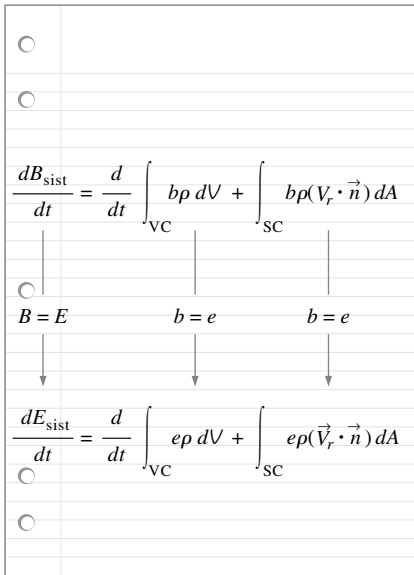 dB_sist/dt = d/dt ∫_VC bρ dV + ∫_SC bρ(V_r · n⃗) dA
B = E b = e b = e
dE_sist/dt = d/dt ∫_VC eρ dV + ∫_SC eρ(V⃗_r · n⃗) dA